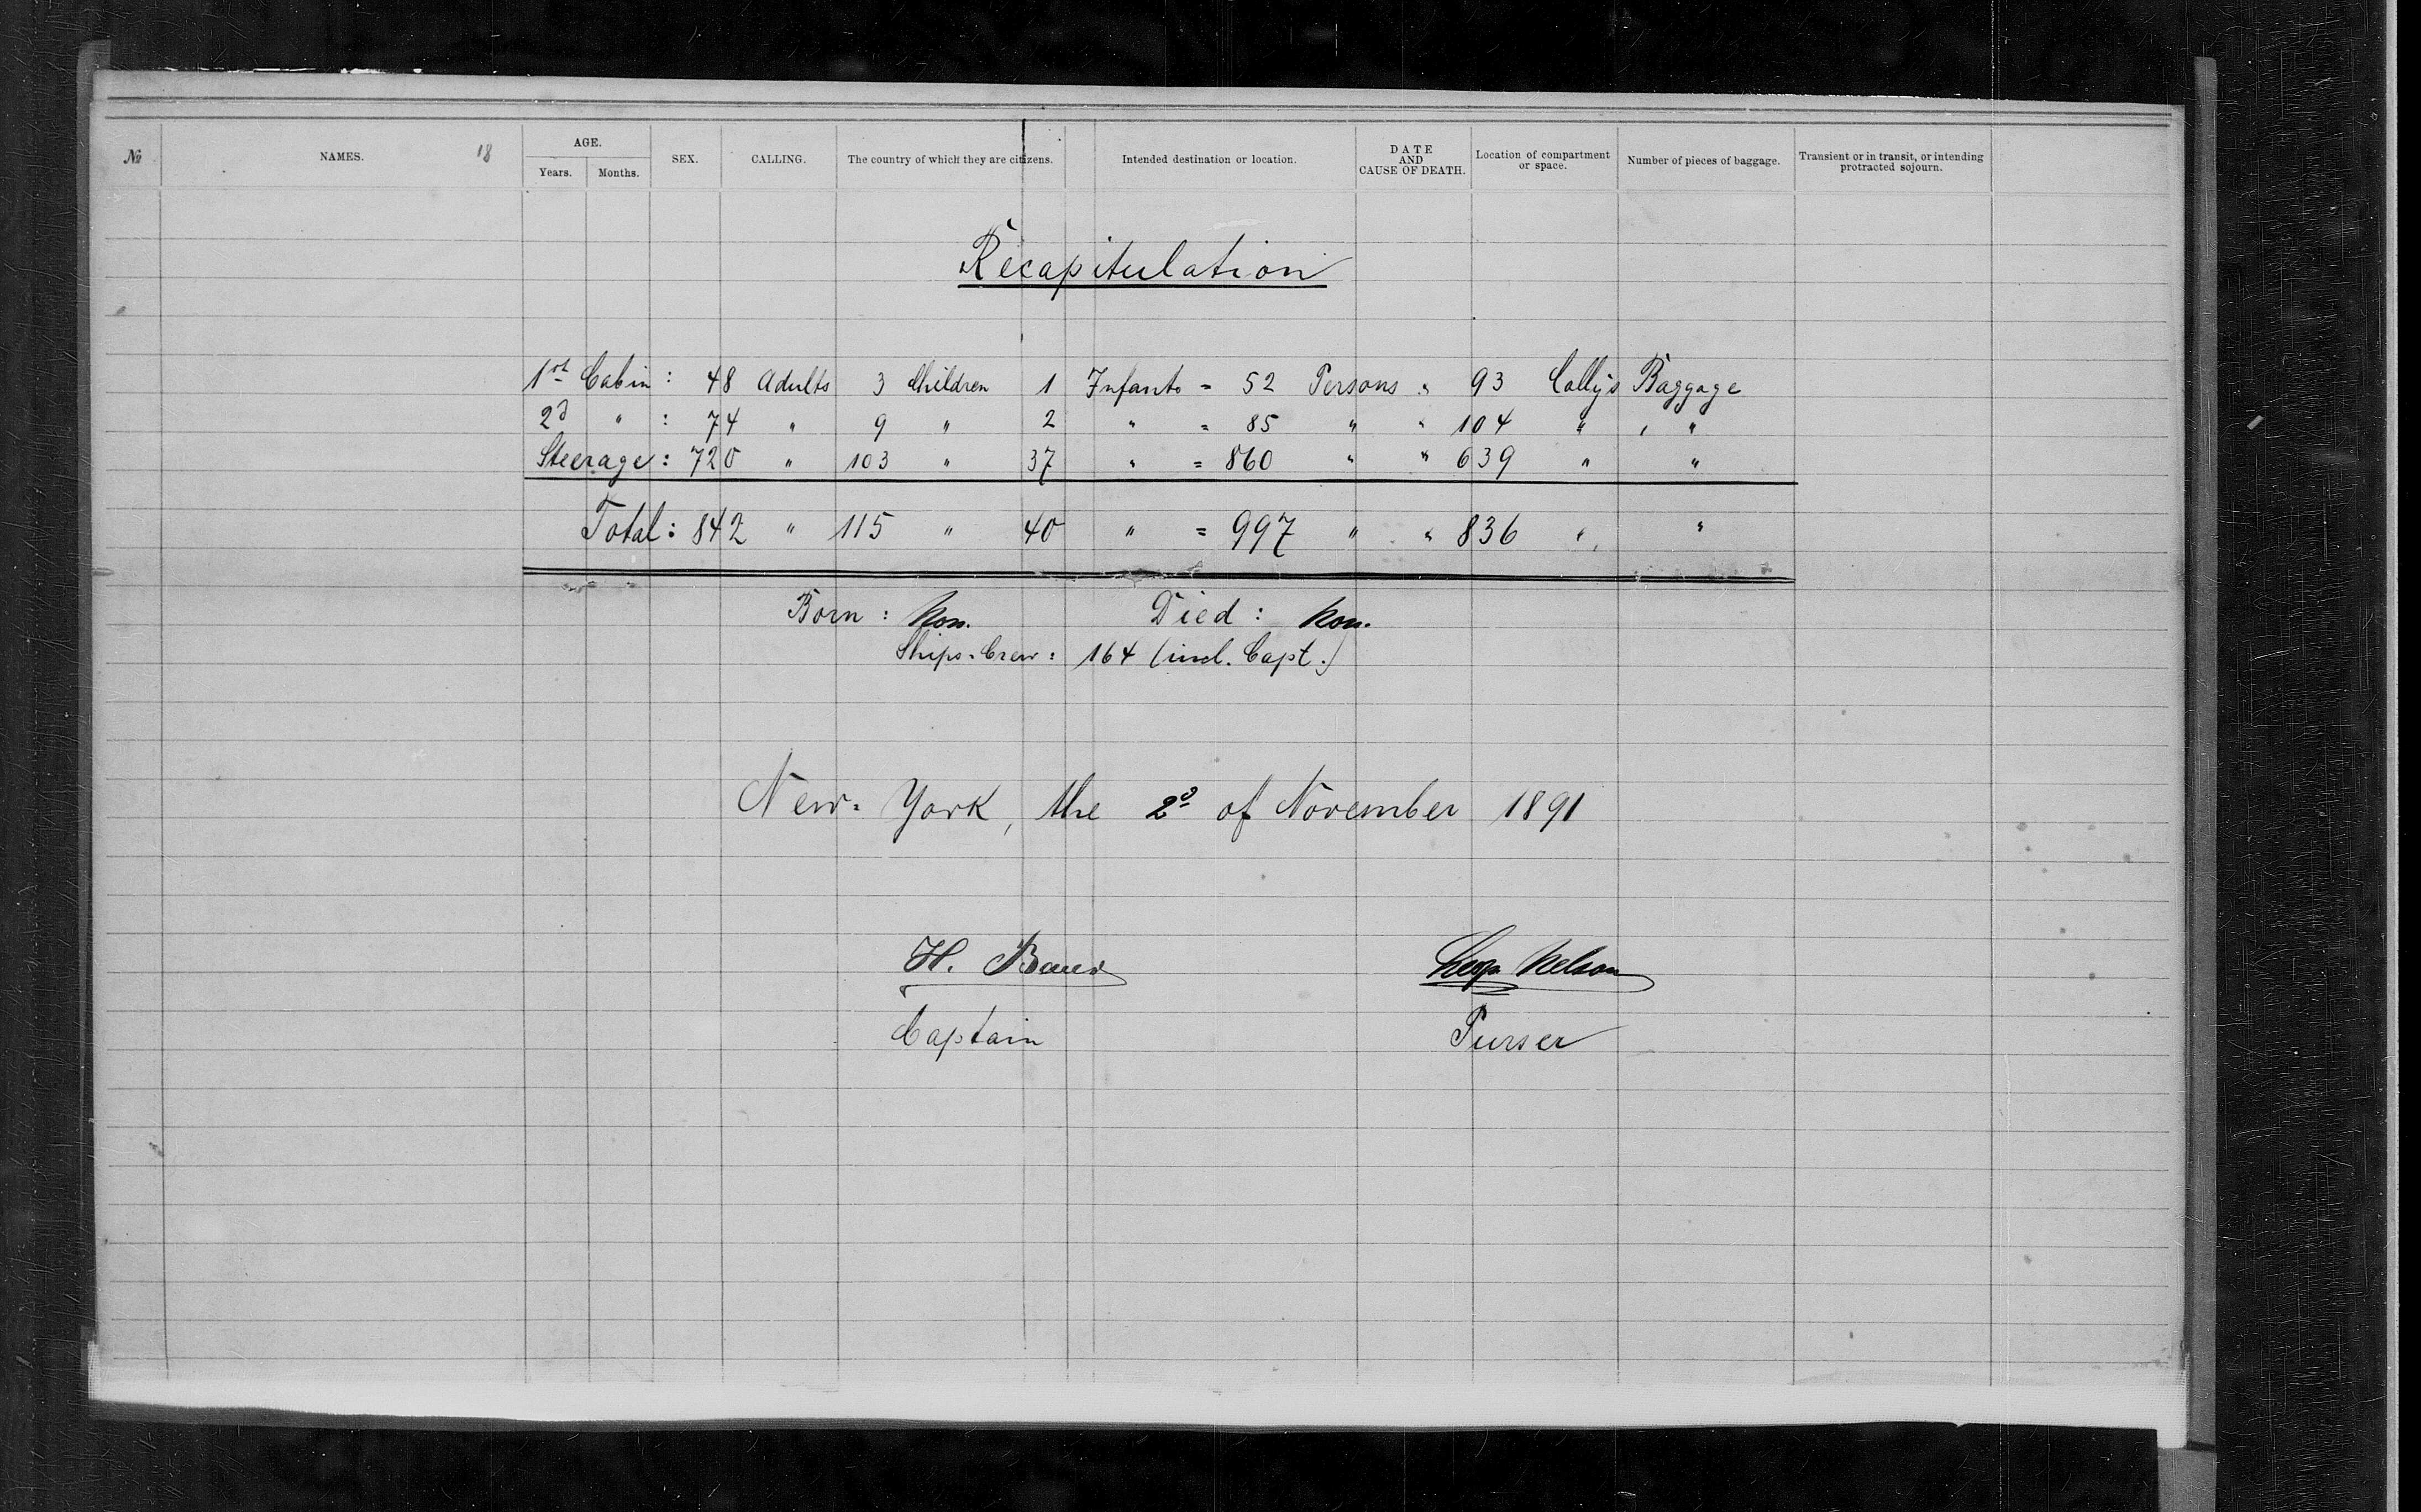 № NAMES. 18 AGE. Years. Months. SEX. CALLING. The country of which they are citizens. Intended destination or location. DATE AND CAUSE OF DEATH. Location of compartment or space. Number of pieces of baggage. Transient or in transit, or intending protracted sojourn.
Recapitulation
1st Cabin : 48 Adults 3 Children 1 Infants = 52 Persons " 93 Collys Baggage
2d " : 74 " 9 " 2 " = 85 " " 104 " "
Steerage : 720 " 103 " 37 " = 860 " " 639 " "
Total : 842 " 115 " 40 " = 997 " " 836 " "
Born : Non. Died : Non.
Ships-Crew : 164 (incl. Capt.)
New-York, the 2d of November 1891
H. Nelson
Captain Purser